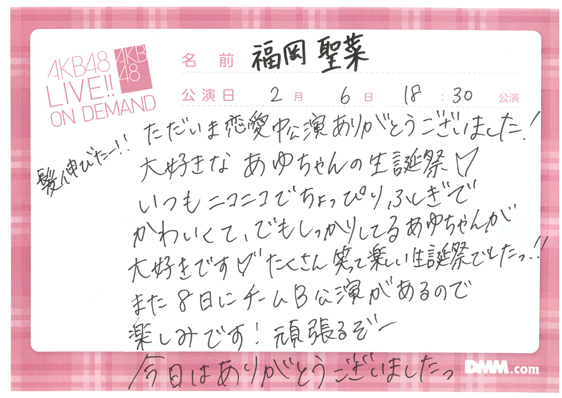 AKB48
LIVE!!
ON DEMAND
AKB
48
名前 福岡聖菜
公演日 2月 6日 18:30 公演
髪伸びたー!!
ただいま恋愛中公演ありがとうございました!
大好きな あゆちゃんの生誕祭♡
いつも ニコニコでちょっぴりふしぎで
かわいくて、でもしっかりしてるあゆちゃんが
大好きです♡ たくさん 笑って楽しい生誕祭でしたっ!!
また 8日にチームB公演があるので
楽しみです! 頑張るぞー
今日はありがとうございましたっ
DMM.com